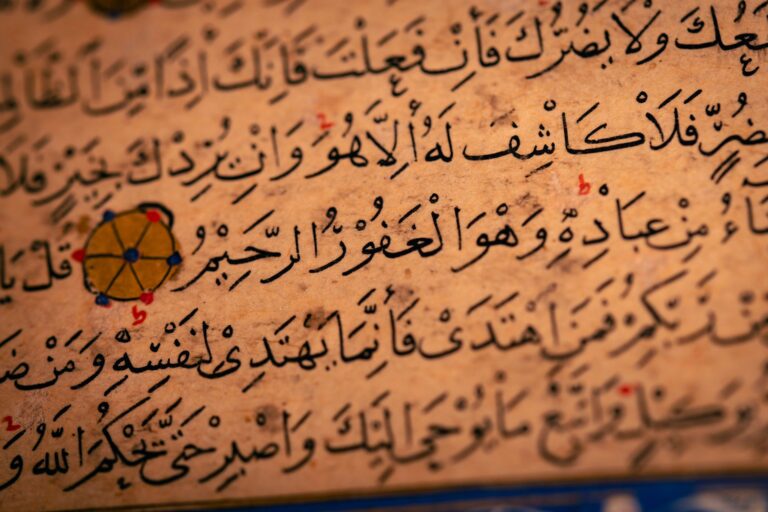 يَنْفَعُكَ وَلَا يَضُرُّكَ فَاِنْ فَعَلْتَ فَاِنَّكَ اِذًا مِنَ الظَّالِمِينَ
بِضُرٍّ فَلَا كَاشِفَ لَهُ اِلَّا هُوَ وَاِنْ يُرِدْكَ بِخَيْرٍ فَلَا
يَشَاءُ مِنْ عِبَادِهِ وَهُوَ الْغَفُورُ الرَّحِيمُ قُلْ يَا
مِنْ رَبِّكُمْ فَمَنِ اهْتَدَى فَاِنَّمَا يَهْتَدِى لِنَفْسِهِ وَمَنْ ضَ
بِوَكِيلٍ وَاتَّبِعْ مَا يُوحَى اِلَيْكَ وَاصْبِرْ حَتَّى يَحْكُمَ اللّٰهُ وَ